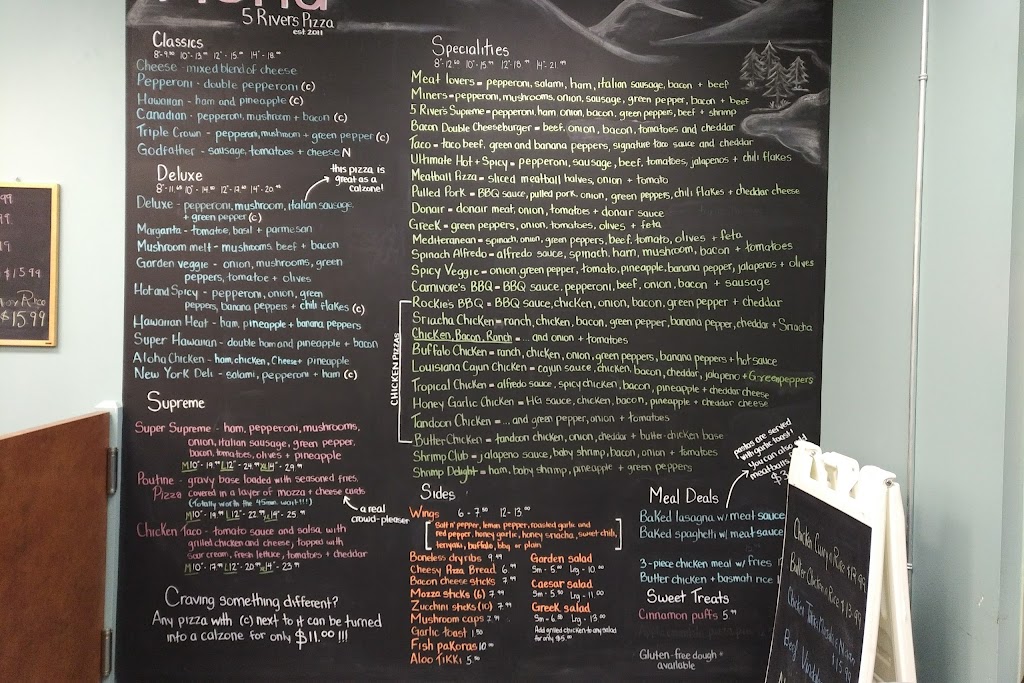 Menu
5 Rivers Pizza
est. 2011
Classics
Cheese - mixed blend of cheese
Pepperoni - double pepperoni (c)
Hawaiian - ham and pineapple (c)
Canadian - pepperoni, mushroom + bacon (c)
Triple Crown - pepperoni, mushroom + green pepper (c)
Godfather - sausage, tomatoes + cheese N
Deluxe
this pizza is
great as a
calzone!
Deluxe - pepperoni, mushroom, italian sausage,
+ green pepper (c)
Margarita - tomatoe, basil + parmesan
Mushroom melt - mushrooms, beef + bacon
Garden veggie - onion, mushrooms, green
peppers, tomatoe + olives
Hot and Spicy - pepperoni, onion, green
peppers, banana peppers + chili flakes (c)
Hawaiian Heat - ham, pineapple + banana peppers
Super Hawaiian - double ham and pineapple + bacon
Aloha Chicken - ham, chicken, Cheese + pineapple
New York Deli - salami, pepperoni + ham (c)
Supreme
Super Supreme - ham, pepperoni, mushrooms,
onion, italian sausage, green pepper,
bacon, tomatoes, olives + pineapple
M10"- 19.99 L12"- 24.99 XL14"- 29.99
Poutine - gravy base loaded with seasoned fries,
Pizza covered in a layer of mozza + cheese curds
(Totally worth the 45min wait!!!)
a real
crowd-pleaser
Chicken Taco - tomato sauce and salsa with
grilled chicken and cheese, topped with
sour cream, fresh lettuce, tomatoes + cheddar
Craving something different?
Any pizza with (c) next to it can be turned
into a calzone for only $11.00 !!!
Specialities
Meat lovers = pepperoni, salami, ham, italian sausage, bacon + beef
Miners = pepperoni, mushrooms, onion, sausage, green pepper, bacon + beef
5 River's Supreme = pepperoni, ham, onion, bacon, green peppers, beef + shrimp
Bacon Double Cheeseburger = beef, onion, bacon, tomatoes and cheddar
Taco = taco beef, green and banana peppers, signature taco sauce and cheddar
Ultimate Hot + Spicy = pepperoni, sausage, beef, tomatoes, jalapenos + chili flakes
Meatball Pizza = sliced meatball halves, onion + tomato
Pulled Pork = BBQ sauce, pulled pork, onion, green peppers, chili flakes + cheddar cheese
Donair = donair meat, onion, tomatoes + donair sauce
Greek = green peppers, onion, tomatoes, olives + feta
Mediteranean = spinach, onion, green peppers, beef, tomato, olives + feta
Spinach Alfredo = alfredo sauce, spinach, ham, mushroom, bacon + tomatoes
Spicy Veggie = onion, green pepper, tomato, pineapple, banana pepper, jalapenos + olives
Carnivore's BBQ = BBQ sauce, pepperoni, beef, onion, bacon + sausage
CHICKEN PIZZAS
Rockie's BBQ = BBQ sauce, chicken, onion, bacon, green pepper + cheddar
Sriacha Chicken = ranch, chicken, bacon, green pepper, banana pepper, cheddar + Sriacha
Chicken, Bacon, Ranch = ... and onion + tomatoes
Buffalo Chicken = ranch, chicken, onion, green peppers, banana peppers + hot sauce
Louisiana Cajun Chicken = cajun sauce, chicken, bacon, cheddar, jalapeno + Greenpeppers
Tropical Chicken = alfredo sauce, spicy chicken, bacon, pineapple + cheddar cheese
Honey Garlic Chicken = HG sauce, chicken, bacon, pineapple + cheddar cheese
Tandoori Chicken = ... and green pepper, onion + tomatoes
Butter Chicken = tandoori chicken, onion, cheddar + butter chicken base
Shrimp Club = jalapeno sauce, baby shrimp, bacon, onion + tomatoes
Shrimp Delight = ham, baby shrimp, pineapple + green peppers
Sides
Wings 6 - 7.50 12 - 13.00
Salt n' pepper, lemon pepper, roasted garlic and
red pepper, honey garlic, honey sriracha, sweet chili,
teriyaki, buffalo, bbq or plain
Boneless dry ribs 9.99
Cheesy Pizza Bread 6.99
Bacon cheese sticks 7.99
Mozza sticks (6) 7.99
Zucchini sticks (10) 7.99
Mushroom caps 7.99
Garlic toast 1.50
Fish pakoras 10.00
Aloo Tikki 5.00
Garden salad
Sm - 5.00 Lrg - 10.00
Caesar salad
Sm - 5.50 Lrg - 11.00
Greek salad
Sm - 6.50 Lrg - 13.00
Add grilled chicken to any salad
for only $5.00
Meal Deals
pastas are served
with garlic toast!
You can also add
meatballs
Baked lasagna w/ meat sauce
Baked spaghetti w/ meat sauce
3-piece chicken meal w/ fries
Butter chicken + basmati rice
Sweet Treats
Cinnamon puffs 5.99
Gluten-free dough
available
$15.99
$15.99
Chicken Curry + Rice $13.99
Butter Chicken + Rice $13.99